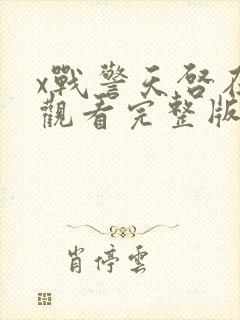 x戰警天啓在
觀看完整版
肖停雲